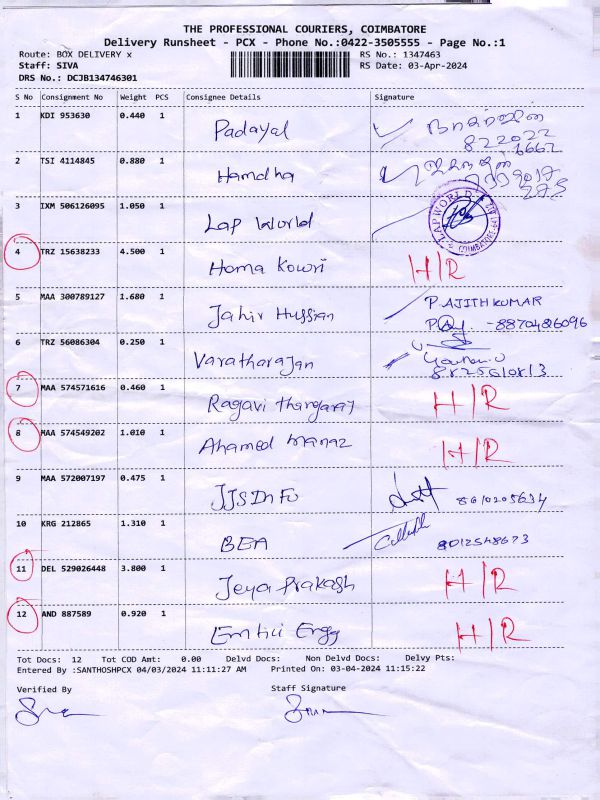 THE PROFESSIONAL COURIERS, COIMBATORE
Delivery Runsheet - PCX - Phone No.:0422-3505555 - Page No.:1
Route: BOX DELIVERY x RS No.: 1347463
Staff: SIVA RS Date: 03-Apr-2024
DRS No.: DCJB134746301
S No Consignment No Weight PCS Consignee Details Signature
1 KDI 953630 0.440 1 Padayal
822022
2 TSI 4114845 0.880 1 Hamdha
3 IXM 506126095 1.050 1 Lap World LAPWORLD
4 TRZ 15638233 4.500 1 Homa Kowri H/R
5 MAA 300789127 1.680 1 Jahir Hussian P. AJITH KUMAR
8870486096
6 TRZ 56086304 0.250 1 Varatharajan
7 MAA 574571616 0.460 1 Ragavi Thangaraj H/R
8 MAA 574549202 1.010 1 Ahamed Manaz H/R
9 MAA 572007197 0.475 1 JJS Info 8610205634
10 KRG 212865 1.310 1 BEA 8012548673
11 DEL 529026448 3.800 1 Jeya Prakash H/R
12 AND 887589 0.920 1 Engg H/R
Tot Docs: 12 Tot COD Amt: 0.00 Delvd Docs: Non Delvd Docs: Delvy Pts:
Entered By :SANTHOSHPCX 04/03/2024 11:11:27 AM Printed On: 03-04-2024 11:15:22
Verified By Staff Signature